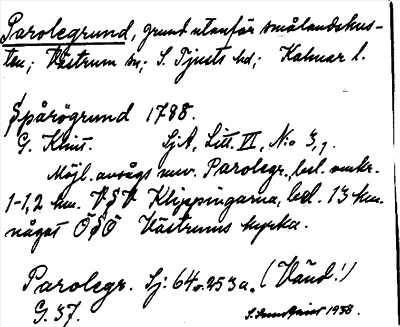 Parolegrund, grund utanför smålandskus-
ten; Västrum sn; S. Tjusts hd; Kalmar l.
Spårögrund 1798.
G. Klint. SjA, Litt. VI, N:o 3,1.
Möjl. avsågs nuv. Parolegr., bel. omkr.
1-1,2 km. VSV Klippingarna, bel. 13 km.
något ÖSÖ Västrums kyrka.
Parolegr. Sj: 64 o. 253a. (Vänd!)
G. 37. 1938.